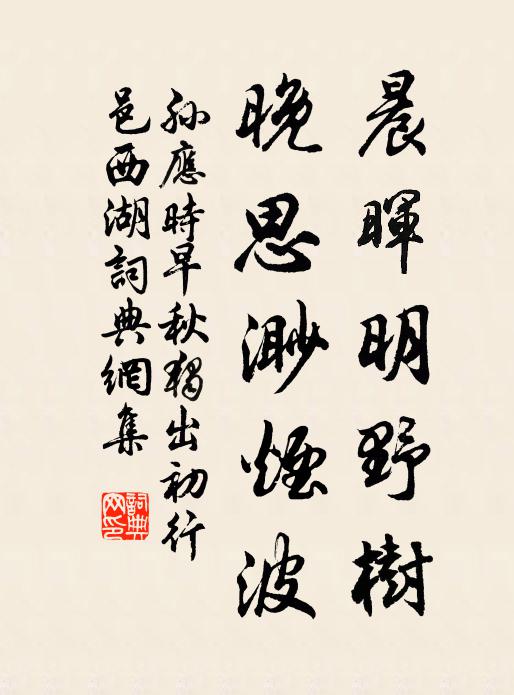 晨暉明野樹
晚思渺煙波
孫應時早秋獨出初行
邑西湖詞典網集
詞典網印